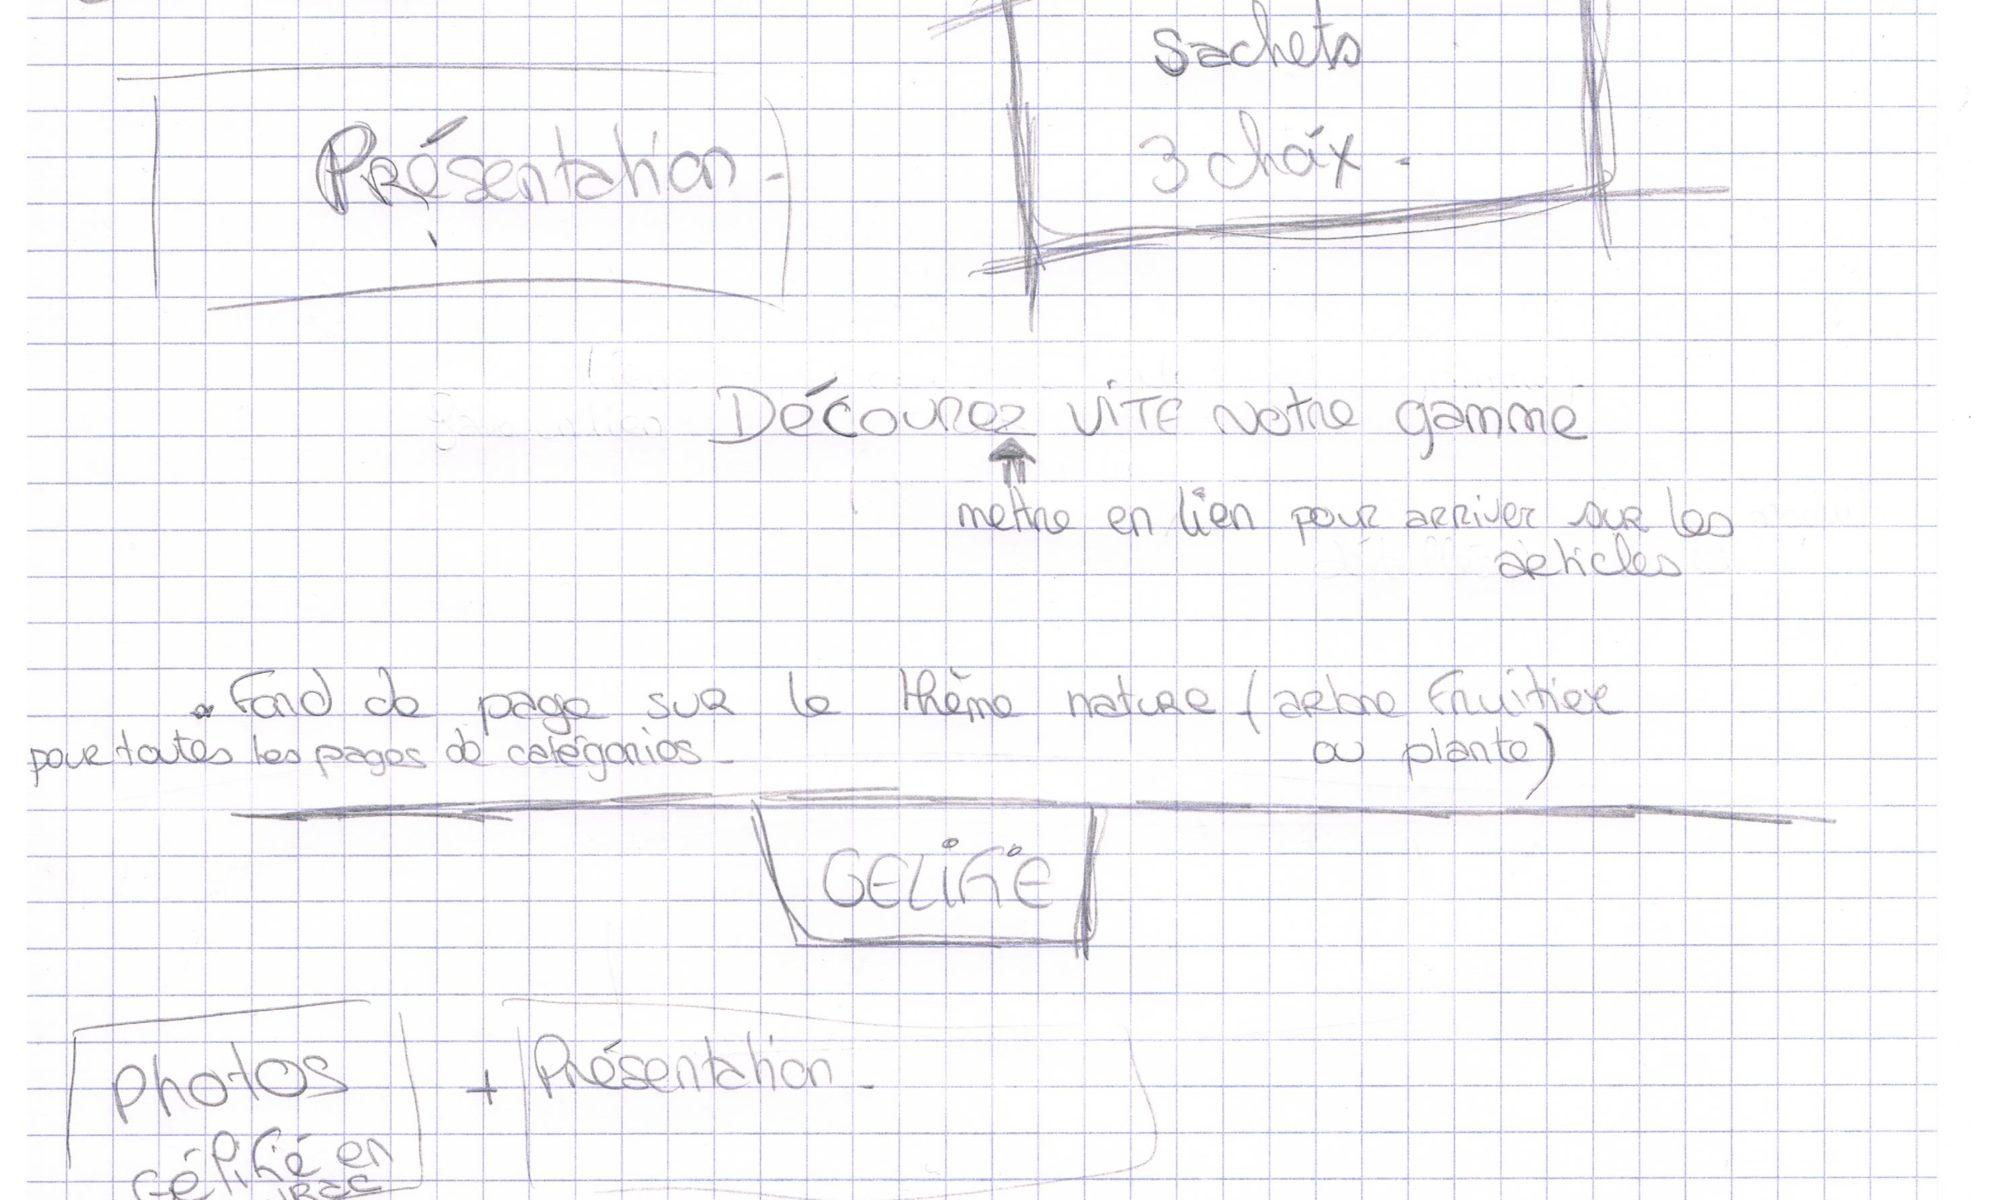 sachets
3 choix.
Présentation.
Découvrez vite notre gamme
mettre en lien pour arriver sur les
articles
Fond de page sur le thème nature (arbre fruitier
ou plante)
pour toutes les pages de catégories.
GELiFiE
Photos
Gélifié en
+ Présentation.